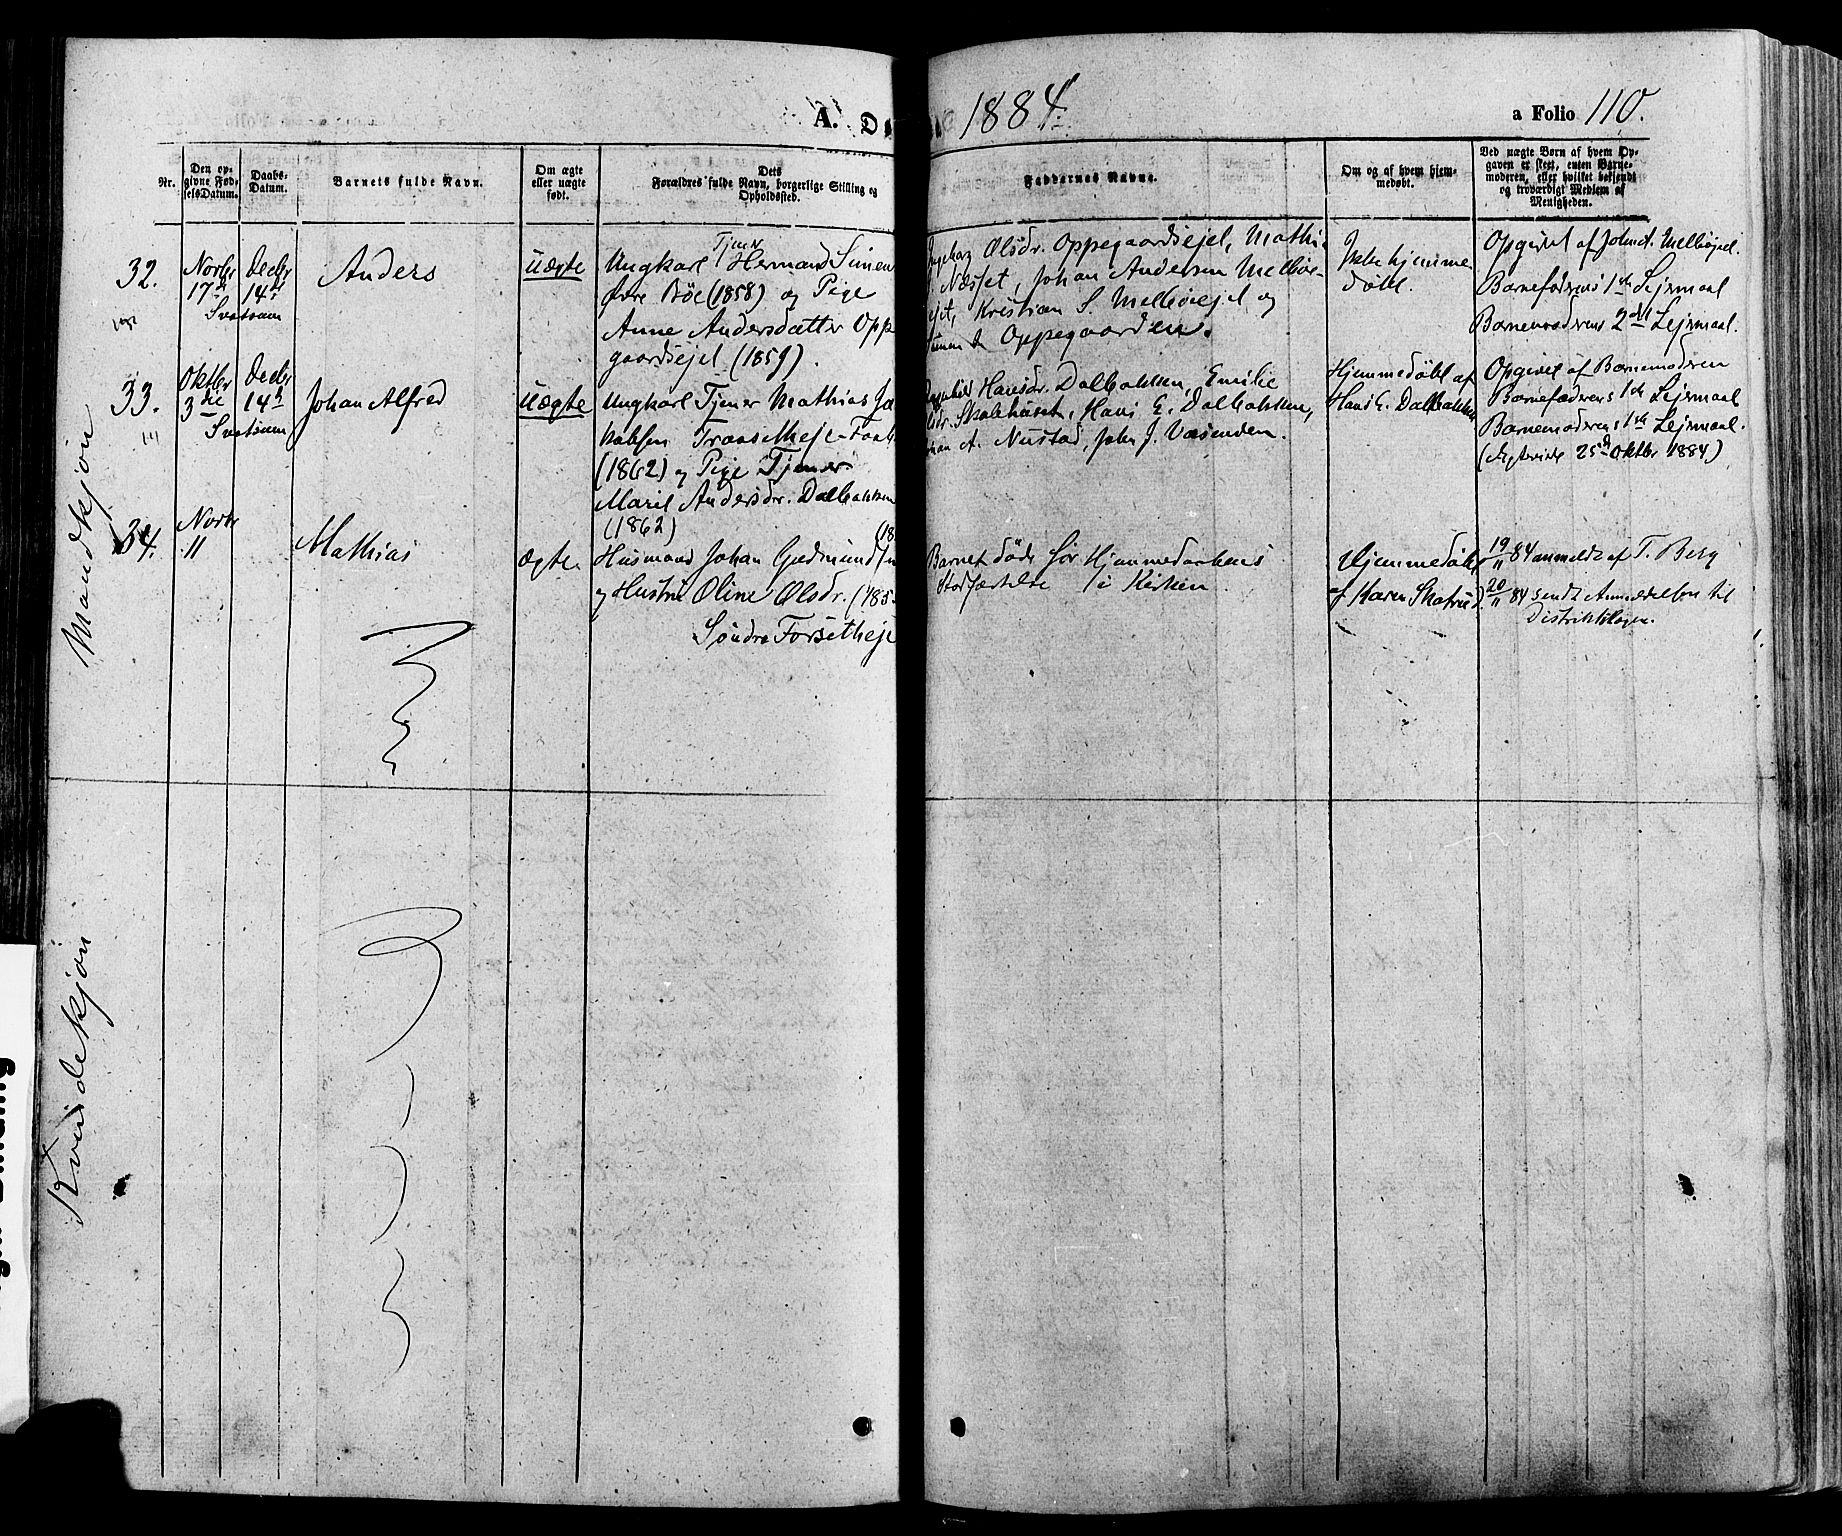 A. D
1884.
a Folio 110.
Nr.
Den op-
givne Fød-
selsDatum.
Daabs-
Datum.
Barnets fulde Navn.
Om ægte
eller uægte
født.
Dets
Forældres fulde Navn, borgerlige Stilling og
Opholdssted.
Faddernes Navne.
Om og af hvem hjem-
medøbt.
Ved uægte Børn af hvem Op-
gaven er skeet, enten Barne-
moderen, eller hvilket bekjendt
og troværdigt Medlem af
Menigheden.
Mandkjøn
32.
Novbr
17de
Decbr
14de
Svatsum
Anders
uægte
Tjener
Ungkarl Herman Simen
Øvre Böe (1858) og Pige
Anne Andersdatter Opp
gaardsejet (1859).
Olsdr. Oppegaardsejet, Mathi
Næsset, Johan Andersen Melbøe-
ejet, Kristian S. Melbøeejet og
Oppegaarden.
Ikke hjemme
døbt.
Opgivet af Johs. Melbøejet.
Barnefaderens 1ste Lejrmaal
Barnemoderens 2det Lejrmaal.
33.
Oktbr
3die
Decbr
14de
Svatsum
Johan Alfred
uægte
Ungkarl Tjener Mathias Ja
kobsen
(1862) og Pige Tjener
Marit Andersdr. Dalbakken
(1862)
Hansdr. Dalbakken, Emilie
Skolehuset, Hans E. Dalbakken,
A. Nustad, John J. Vasenden.
Hjemmedøbt af
Hans E. Dalbakken
Opgivet af Barnemoderen
Barnefaderens 1ste Lejrmaal
Barnemoderens 1ste Lejrmaal.
25de Oktbr 1884)
34.
Novbr
11
Mathias
ægte
Husmand Johan Gudmunds
og Hustru Oline Olsdr. (185
Søndre Forsetheje
Barnet døde før Hjemmedaabens
Stadfæstelse i Kirken
Hjemmedøbt
af Karen Skotrud.
19/11 84 anmeldt af T. Berg
20/11 84 sendt Anmeldelsen til
Distriktslægen.
Kvindekjøn